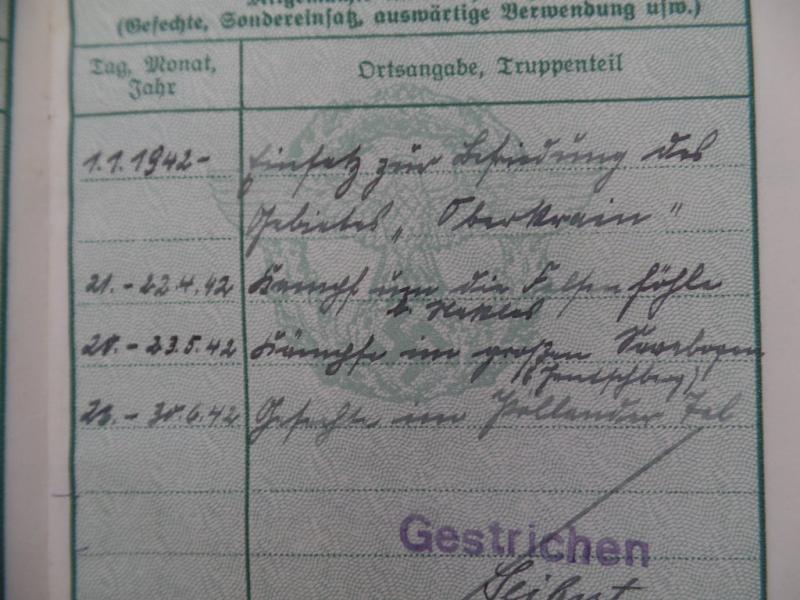 (Gefechte, Sondereinsatz, auswärtige Verwendung usw.)
Tag, Monat,
Jahr
Ortsangabe, Truppenteil
1.1.1942-
Einsatz zur Befriedung des
Gebietes „Oberkrain"
21.-22.4.42
Kampf um die Felsenhöhle
b. Neklos
20.-23.5.42
Kämpfe im großen Savebogen
(Jantschberg)
23.-30.6.42
Gefechte im Pöllander Tal
Gestrichen